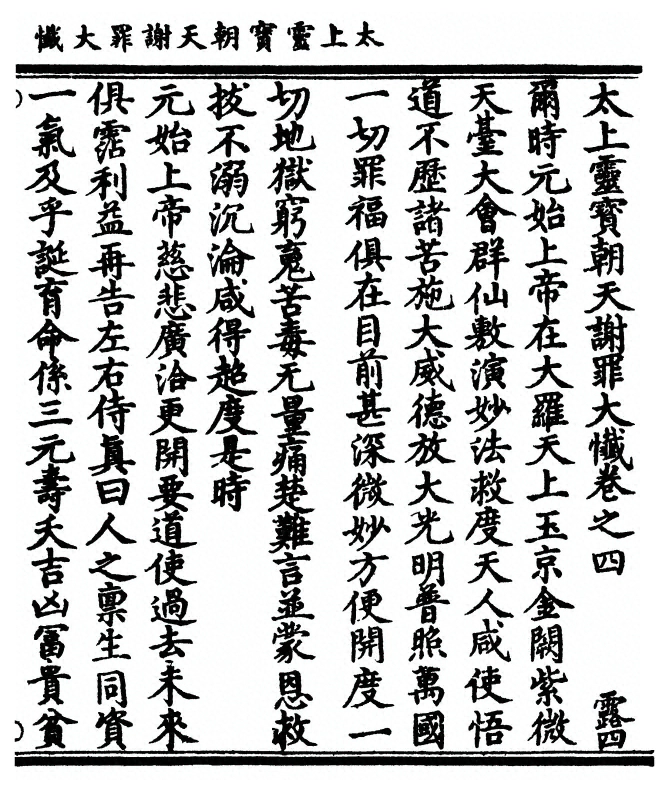 太上靈寶朝天謝罪大懺
太上靈寶朝天謝罪大懺卷之四 露四
爾時元始上帝在大羅天上玉京金闕紫微
天臺大會群仙敷演妙法救度天人咸使悟
道不歷諸苦施大威德放大光明普照萬國
一切罪福俱在目前甚深微妙方便開度一
切地獄窮䰟苦毒无量痛楚難言並蒙恩救
拔不溺沉淪咸得超度是時
元始上帝慈悲廣洽更開要道使過去未來
俱霑利益再告左右侍真曰人之禀生同資
一氣及乎誕有命係三元壽夭吉凶冨貴貧